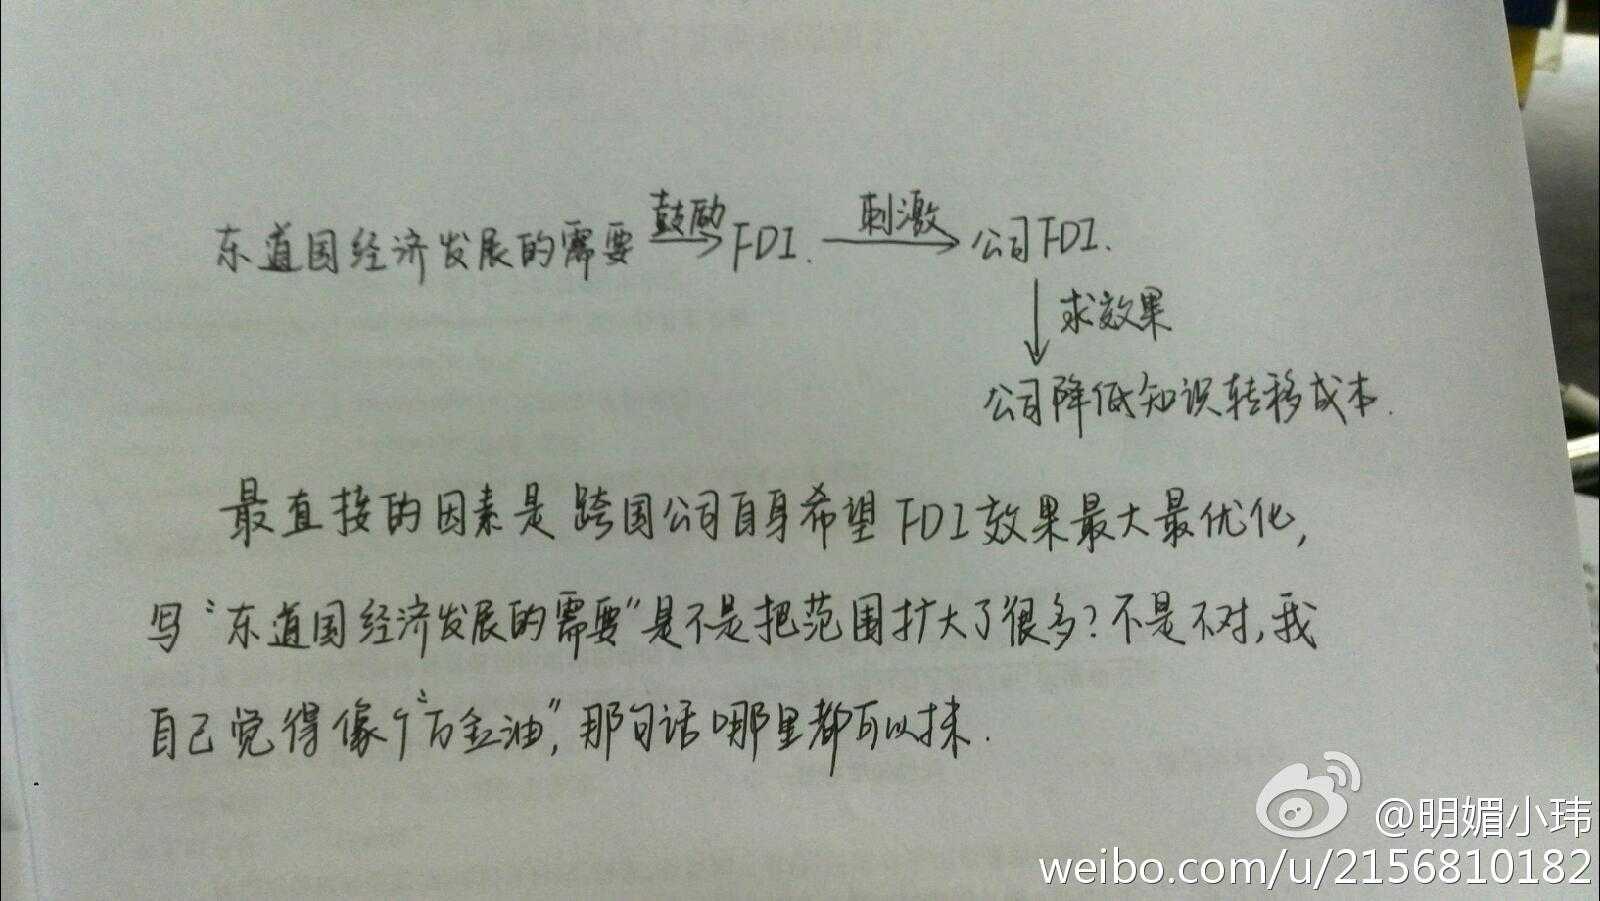 东道国经济发展的需要 鼓励 FDI. 刺激 公司FDI.
求效果
公司降低知识转移成本.
最直接的因素是跨国公司自身希望FDI效果最大最优化,
写“东道国经济发展的需要”是不是把范围扩大了很多?不是不对,我
自己觉得像个“万金油”,那句话哪里都可以抹.
@明媚小玮
weibo.com/u/2156810182